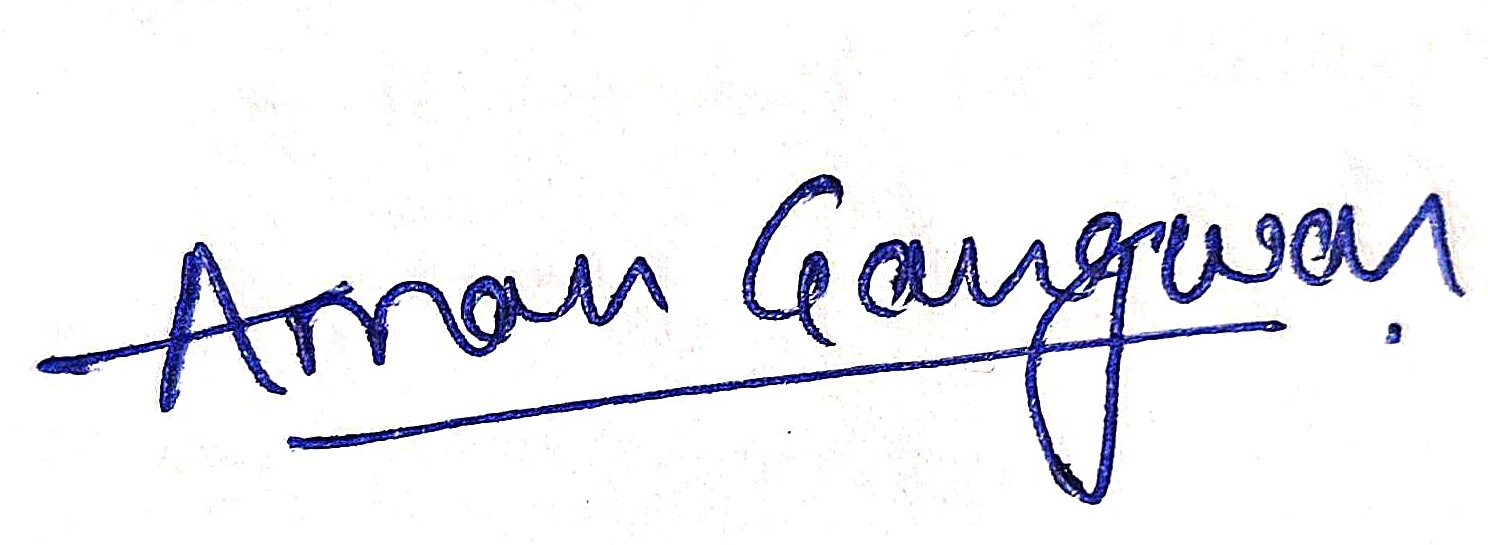 Aman Gangwar